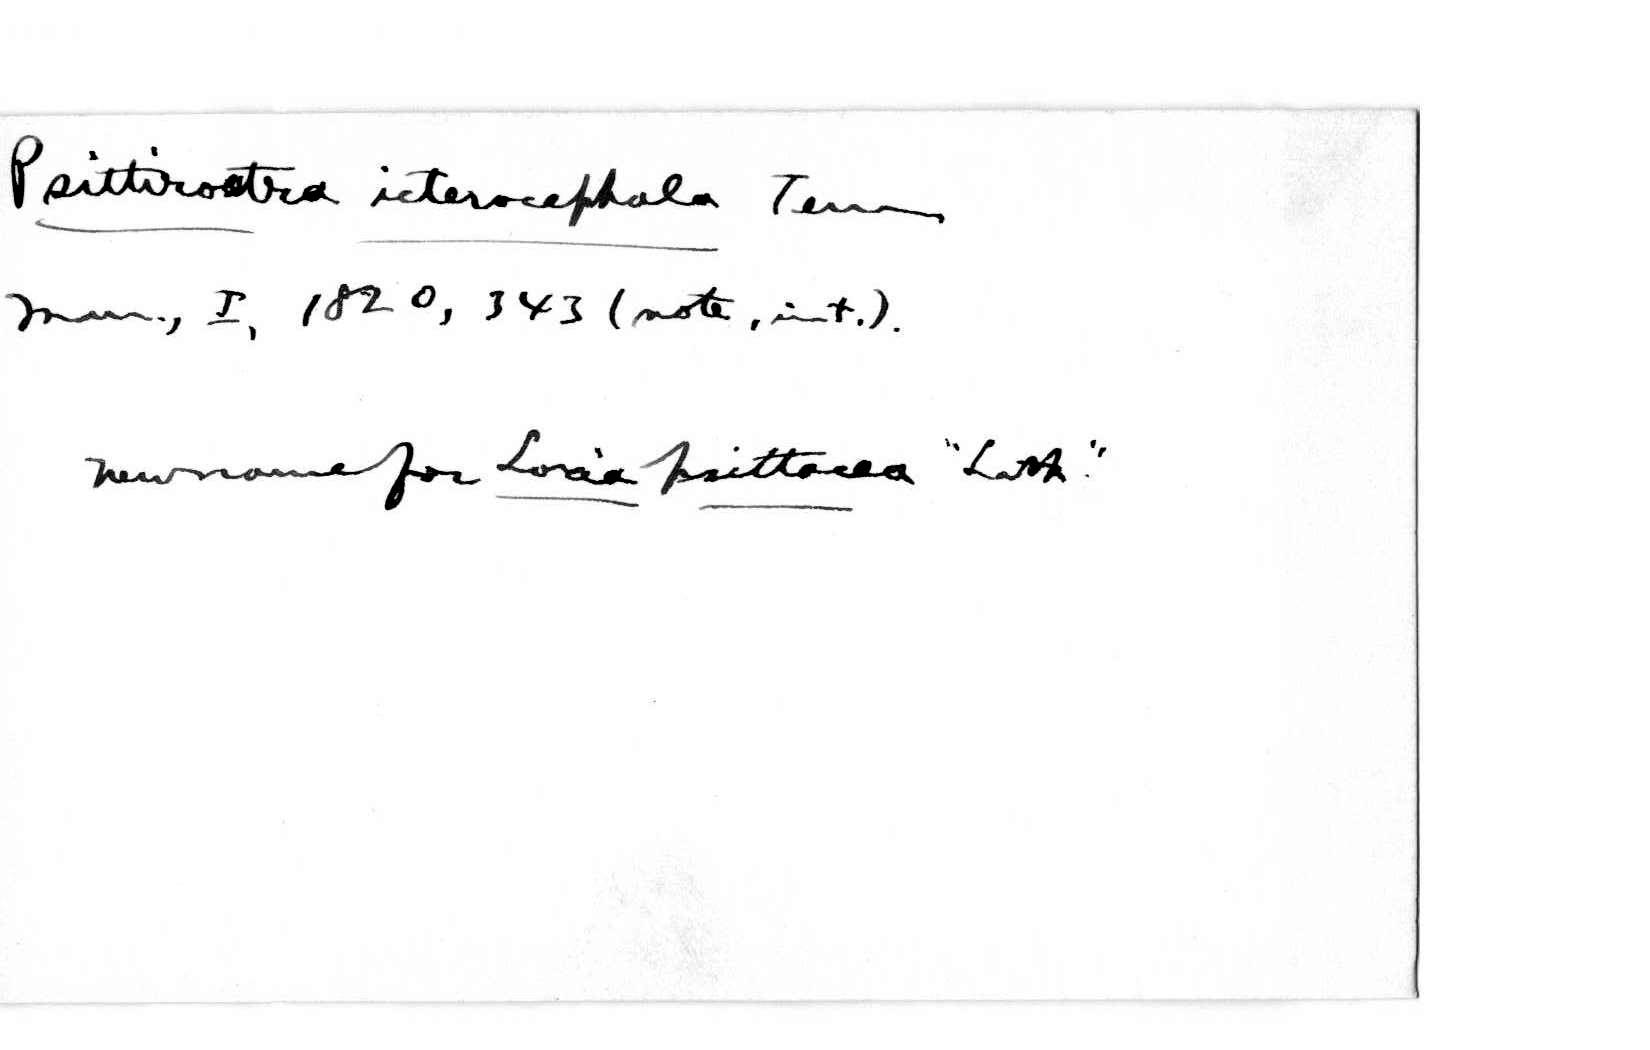 Psittirostra icterocephala Tem
Man., I, 1820, 343 (note, int.).
new name for Loxia psittacea "Lath."